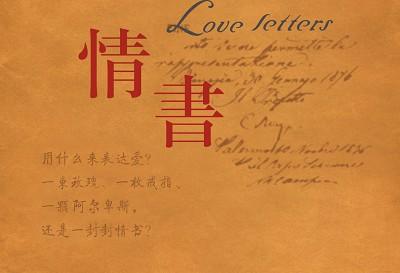 Love letters
情書
rappresentazione.
Venezia, 30 Gennajo 1876
Il Prefetto
用什么来表达爱?
一束玫瑰、一枚戒指、
一颗阿尔卑斯,
还是一封封情书?